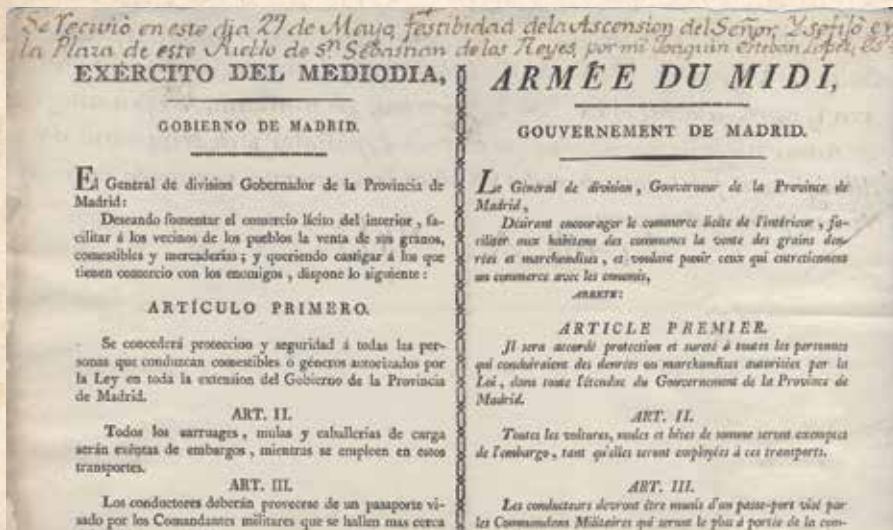 Se recivió en este dia 27 de Mayo, festibidad dela Ascension del Señor, Y sefijó en
la Plaza de este Pueblo de Sn. Sebastian delos Reyes, por mi Joaquin Esteban Lopez,
EXÉRCITO DEL MEDIODIA,
GOBIERNO DE MADRID.
El General de division Gobernador de la Provincia de
Madrid:
Deseando fomentar el comercio lícito del interior, fa-
cilitar á los vecinos de los pueblos la venta de sus granos,
comestibles y mercaderías; y queriendo castigar á los que
tienen comercio con los enemigos, dispone lo siguiente:
ARTÍCULO PRIMERO.
Se concederá proteccion y seguridad á todas las per-
sonas que conduzcan comestibles ó géneros autorizados por
la Ley en toda la extension del Gobierno de la Provincia
de Madrid.
ART. II.
Todos los carruages, mulas y caballerías de carga
serán exêntas de embargos, mientras se empleen en estos
transportes.
ART. III.
Los conductores deberán proveerse de un pasaporte vi-
sado por los Comandantes militares que se hallen mas cerca
ARMÉE DU MIDI,
GOUVERNEMENT DE MADRID.
Le Général de division, Gouverneur de la Province de
Madrid,
Désirant encourager le commerce licite de l'intérieur, fa-
ciliter aux habitans des communes la vente des grains den-
rées et marchandises, et voulant punir ceux qui entretiennent
un commerce avec les ennemis,
ARRETE:
ARTICLE PREMIER.
Il sera accordé protection et sureté à toutes les personnes
qui conduiraient des denrées ou marchandises autorisées par la
Loi, dans toute l'étendue du Gouvernement de la Province de
Madrid.
ART. II.
Toutes les voitures, mules et bêtes de somme seront exemptes
de l'embargo, tant qu'elles seront employées à ces transports.
ART. III.
Les conducteurs devront être munis d'un passe-port visé par
les Commandans Militaires qui seront le plus à portée de la com-